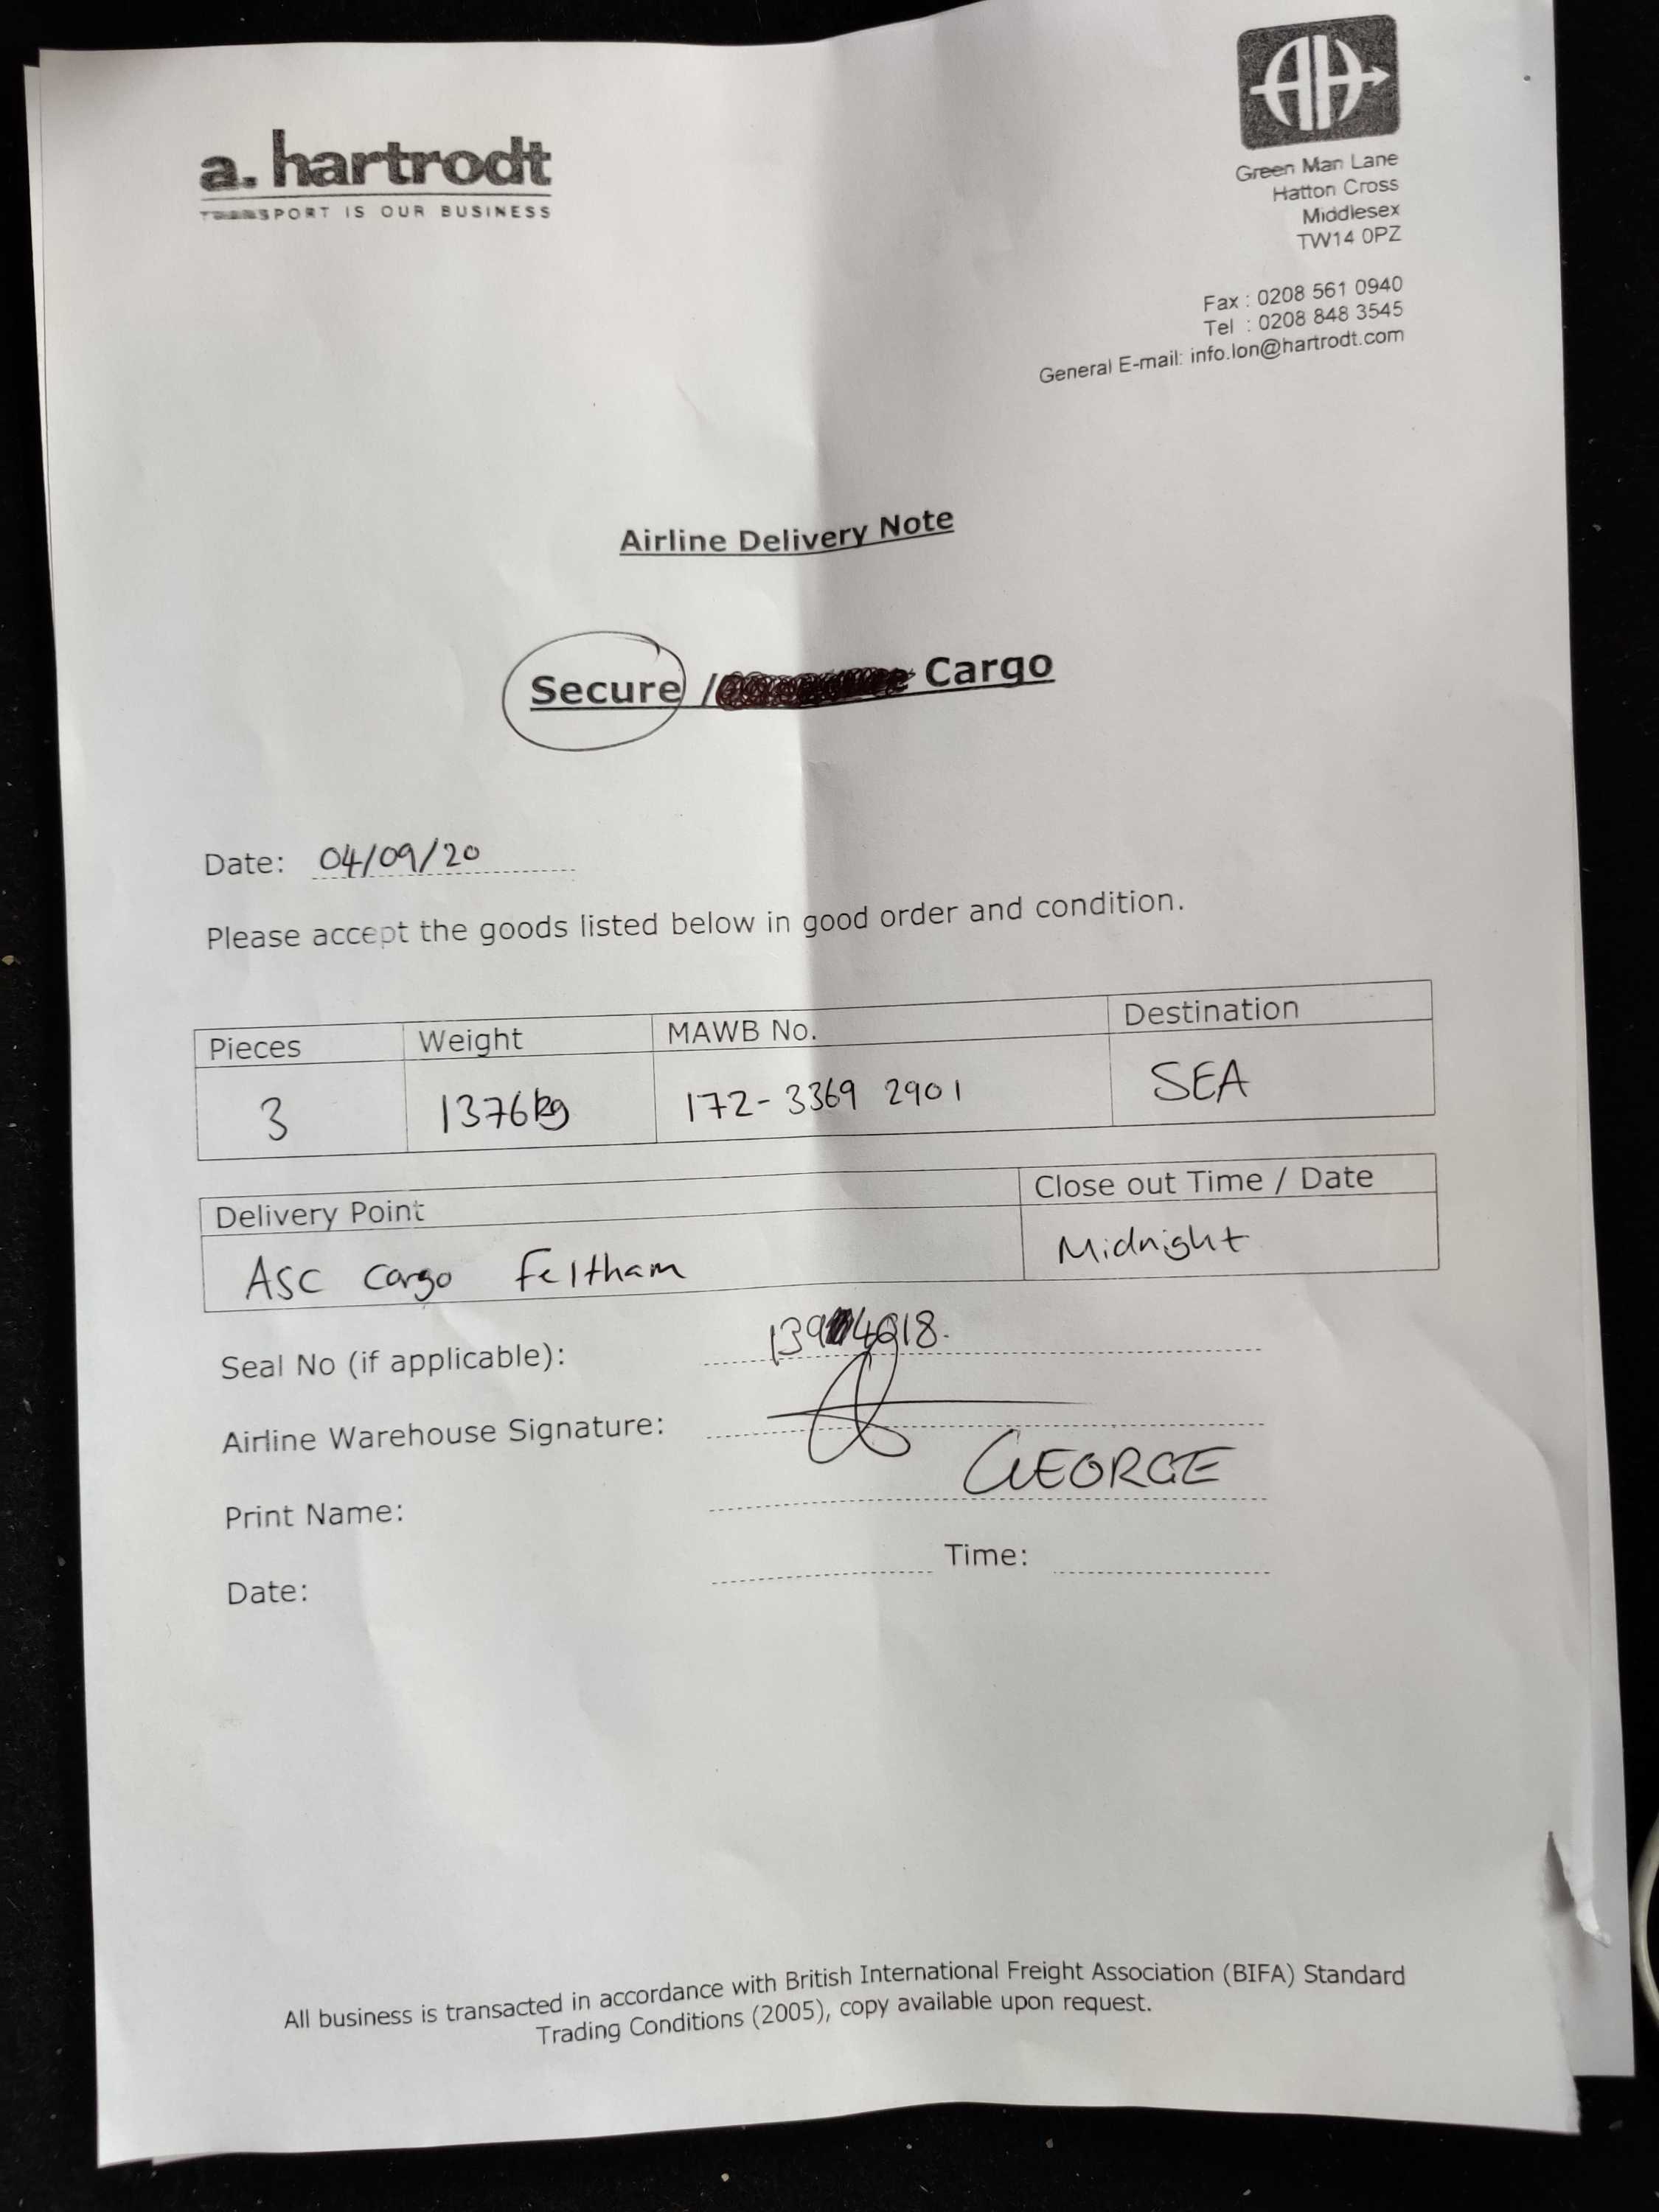 a. hartrodt
TRANSPORT IS OUR BUSINESS
AH
Green Man Lane
Hatton Cross
Middlesex
TW14 0PZ
Fax : 0208 561 0940
Tel : 0208 848 3545
General E-mail: info.lon@hartrodt.com
Airline Delivery Note
Secure / Cargo
Date: 04/09/20
Please accept the goods listed below in good order and condition.
Pieces Weight MAWB No. Destination
3 1376kg 172-3369 2901 SEA
Delivery Point Close out Time / Date
ASC Cargo Feltham Midnight
Seal No (if applicable):
Airline Warehouse Signature:
Print Name: GEORGE
Date: Time:
All business is transacted in accordance with British International Freight Association (BIFA) Standard
Trading Conditions (2005), copy available upon request.